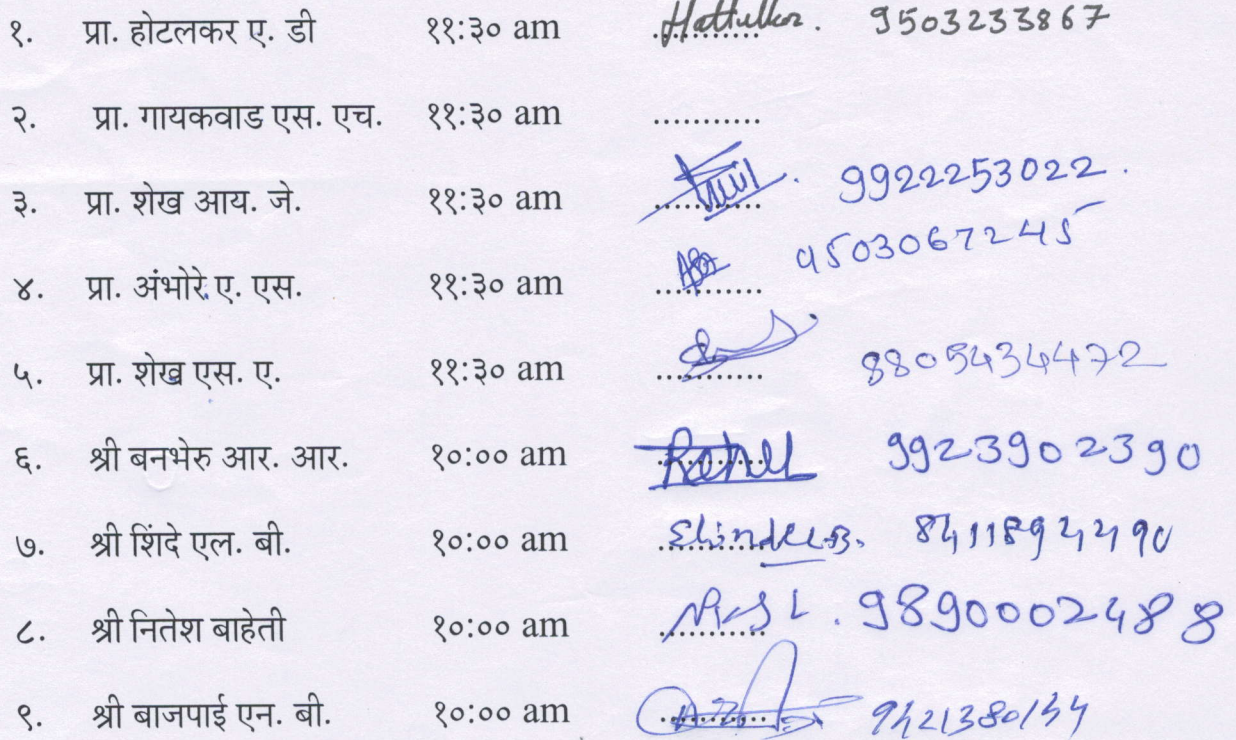 १. प्रा. होटलकर ए. डी ११:३० am ........... 9503233867
२. प्रा. गायकवाड एस. एच. ११:३० am ...........
३. प्रा. शेख आय. जे. ११:३० am ........... 9922253022.
४. प्रा. अंभोरे ए. एस. ११:३० am ........... 9503067245
५. प्रा. शेख एस. ए. ११:३० am ........... 8805434472
६. श्री बनभेरु आर. आर. १०:०० am ........... 9923902390
७. श्री शिंदे एल. बी. १०:०० am ...........
८. श्री नितेश बाहेती १०:०० am ........... 9890002488
९. श्री बाजपाई एन. बी. १०:०० am ...........